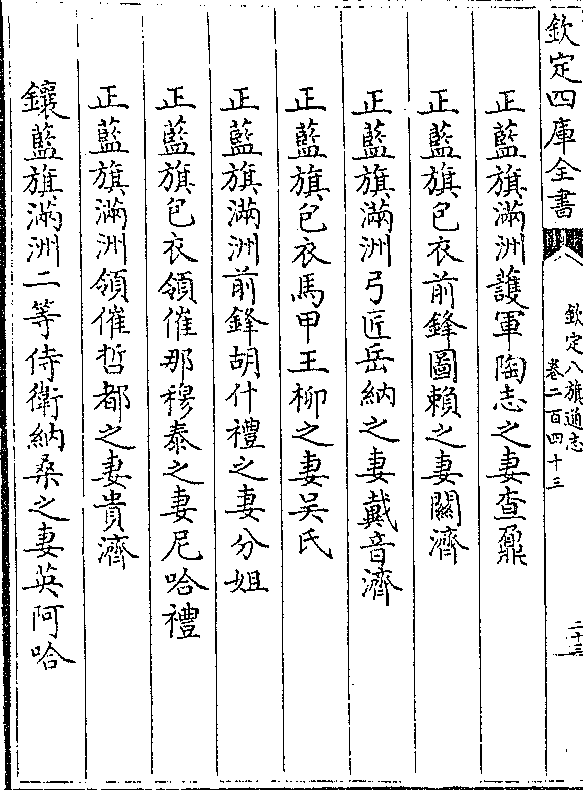 欽定四庫全書
欽定八旗通志
卷二百四十三
二十三
正藍旗滿洲護軍陶志之妻查鼐
正藍旗包衣前鋒圖賴之妻關濟
正藍旗滿洲弓匠岳納之妻戴音濟
正藍旗包衣馬甲王柳之妻吴氏
正藍旗滿洲前鋒胡什禮之妻分姐
正藍旗包衣領催那穆泰之妻尼哈禮
正藍旗滿洲領催哲都之妻貴濟
鑲藍旗滿洲二等侍衛納桑之妻英阿哈